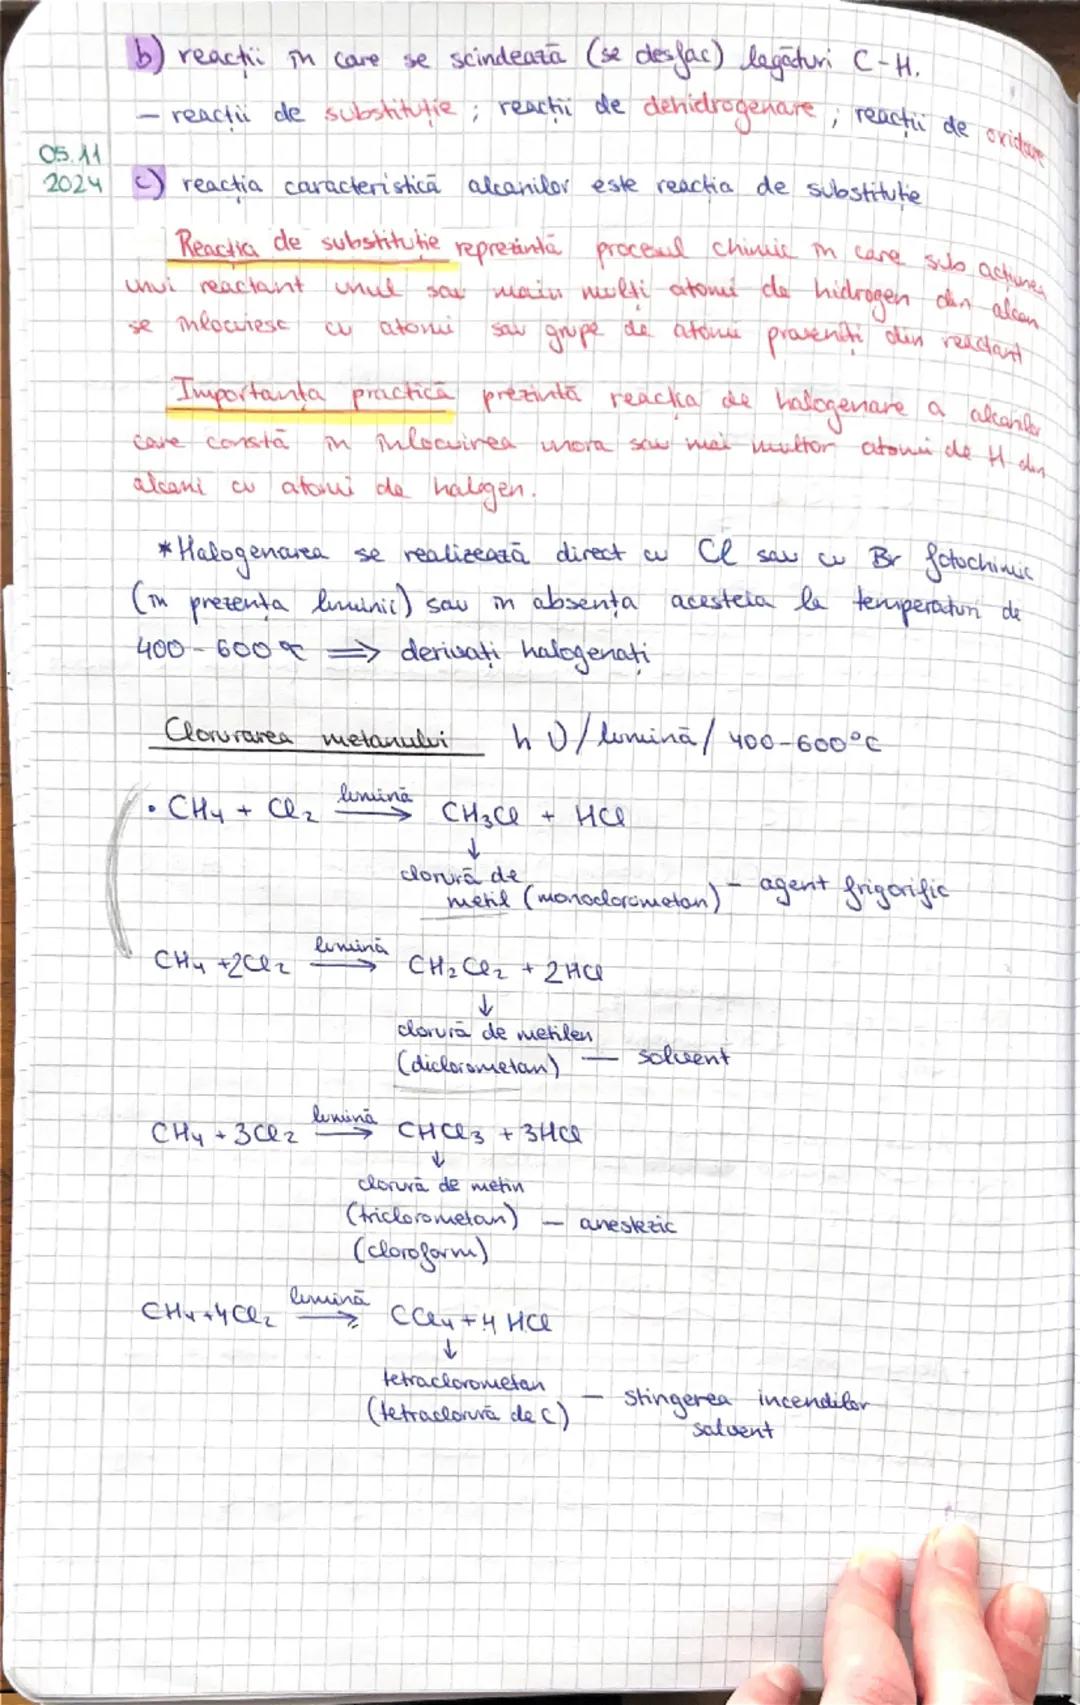 b) reacții în care se scindează (se desfac) legături C-H.
- reacții de substituție ; reacții de dehidrogenare ; reacții de oxidare
05.11
2024 c) reacția caracteristică alcanilor este reacția de substituție
Reacția de substituție reprezintă procesul chimic în care sub acțiunea
unui reactant unul sau main mulți atomi de hidrogen din alcan
se înlocuiesc cu atomi sau grupe de atomi proveniți din reactant
Importanța practică prezintă reacția de halogenare a alcanilor
care constă în înlocuirea unora sau mai multor atomi de H din
alcani cu atomi de halogen.
*Halogenarea se realizează direct cu Cl sau cu Br fotochimic
(în prezența luminii) sau în absența acesteia la temperaturi de
400-600°C ⟹ derivați halogenați
Clorurarea metanului hυ/lumină/400-600°C
• CH₄ + Cl₂ lumină→ CH₃Cl + HCl
↓
clorură de
metil (monoclorometan) - agent frigorific
CH₄ +2Cl₂ lumină→ CH₂Cl₂ + 2HCl
↓
clorură de metilen
(diclorometan) — solvent
CH₄ + 3Cl₂ lumină→ CHCl₃ + 3HCl
↓
clorură de metin
(triclorometan) — anestezic
(cloroform)
CH₄+4Cl₂ lumină→ CCl₄ + 4 HCl
↓
tetraclorometan
(tetraclorură de C) - stingerea incendiilor
solvent